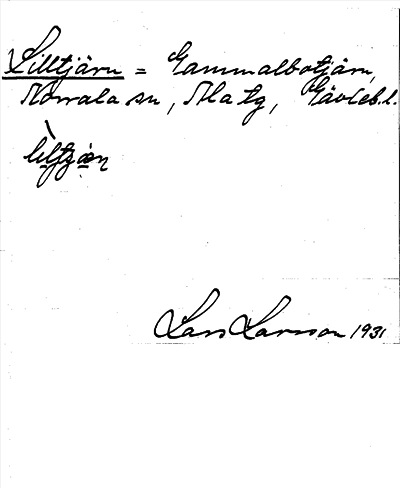 Lilltjärn = Gammalbotjärn,
Norrala sn, Ala tg, Gävleb. l.
Lars Larsson 1931